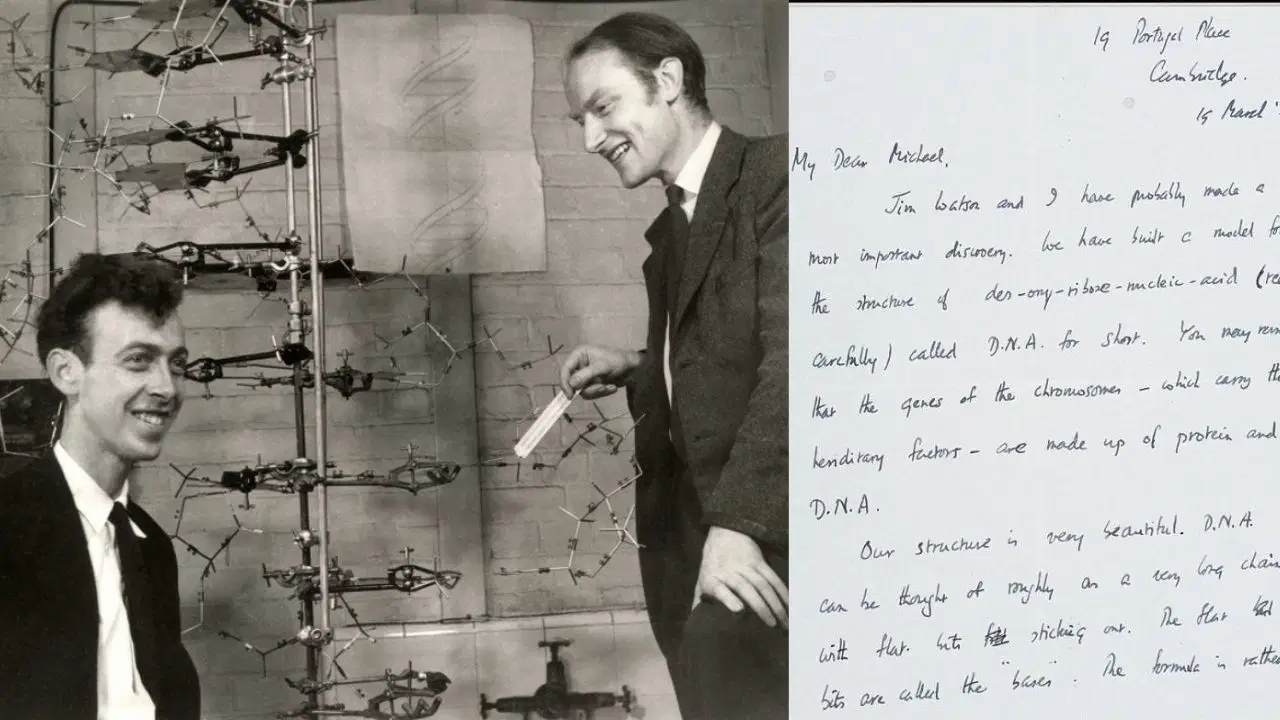 19 Portugal Place
Cambridge.
19 March '
My Dear Michael,
Jim Watson and I have probably made a
most important discovery. We have built a model for
the structure of des-oxy-ribose-nucleic-acid (read
carefully) called D.N.A. for short. You may
that the genes of the chromosomes - which carry the
hereditary factors - are made up of protein and
D.N.A.
Our structure is very beautiful. D.N.A.
can be thought of roughly as a very long chain
with flat bits sticking out. The flat
bits are called the "bases". The formula is rather